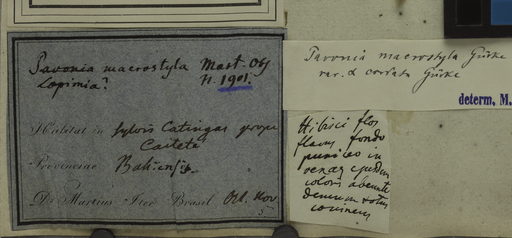 Pavonia macrostyla Mart. Obs
Lopimia? n. 1901.
Habitat in sylvis Catingas prope
Caiteté
Provinciae Bahiensis.
Dr. Martius Iter Brasil. Oct. Nov.
Pavonia macrostyla Gürke
var. α cordata Gürke
determ. M.
Hibisci flos
flavus fondo
puniceo in
venas ejusdem
coloris abeunte
demum totus